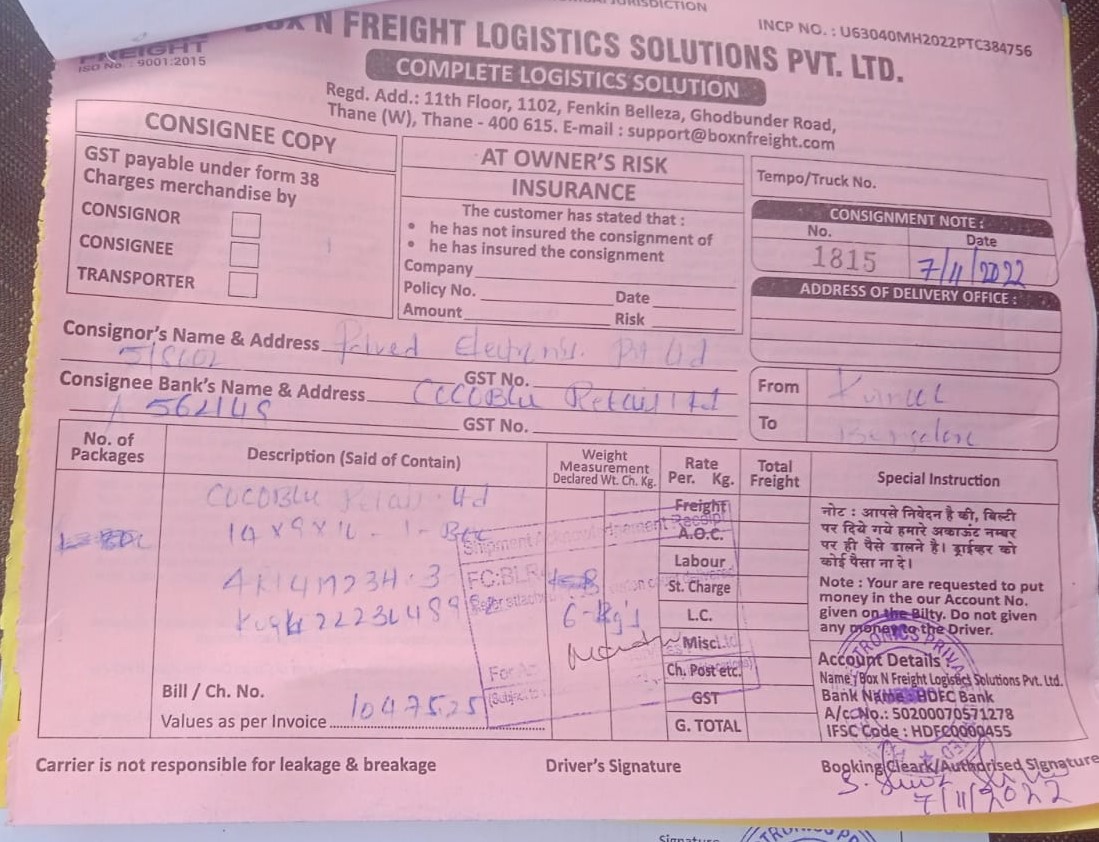 JURISDICTION
INCP NO. : U63040MH2022PTC384756
BOX N FREIGHT LOGISTICS SOLUTIONS PVT. LTD.
FREIGHT
ISO No. : 9001:2015
COMPLETE LOGISTICS SOLUTION
Regd. Add.: 11th Floor, 1102, Fenkin Belleza, Ghodbunder Road,
Thane (W), Thane - 400 615. E-mail : support@boxnfreight.com
CONSIGNEE COPY
GST payable under form 38
Charges merchandise by
CONSIGNOR
CONSIGNEE
TRANSPORTER
AT OWNER'S RISK
INSURANCE
The customer has stated that :
• he has not insured the consignment of
• he has insured the consignment
Company
Policy No. Date
Amount Risk
Tempo/Truck No.
CONSIGNMENT NOTE :
No. Date
1815 7/11/2022
ADDRESS OF DELIVERY OFFICE :
Consignor's Name & Address Pvt Ltd
GST No.
Consignee Bank's Name & Address COCOBLU Retail Ltd
562149
GST No.
From
To Bangalore
No. of Packages
Description (Said of Contain)
Weight Measurement Declared Wt. Ch. Kg.
Rate Per. Kg.
Total Freight
Special Instruction
COCOBLU Retail Ltd
Shipment Acknowledgement Receipt
FC:BLR
6-Kg's
Freight
A.O.C.
Labour
St. Charge
L.C.
Miscl.
Ch. Post etc.
GST
G. TOTAL
नोट : आपसे निवेदन है की, बिल्टी
पर दिये गये हमारे अकाऊंट नम्बर
पर ही पैसे डालने है। ड्राईव्हर को
कोई पैसा ना दे।
Note : Your are requested to put
money in the our Account No.
given on the Bilty. Do not given
any money to the Driver.
Account Details
Name : Box N Freight Logistics Solutions Pvt. Ltd.
Bank Name : HDFC Bank
A/c No.: 50200070571278
IFSC Code : HDFC0000455
Bill / Ch. No.
Values as per Invoice 10475.25
Carrier is not responsible for leakage & breakage
Driver's Signature
Booking Cleark/Authorised Signature
7/11/2022